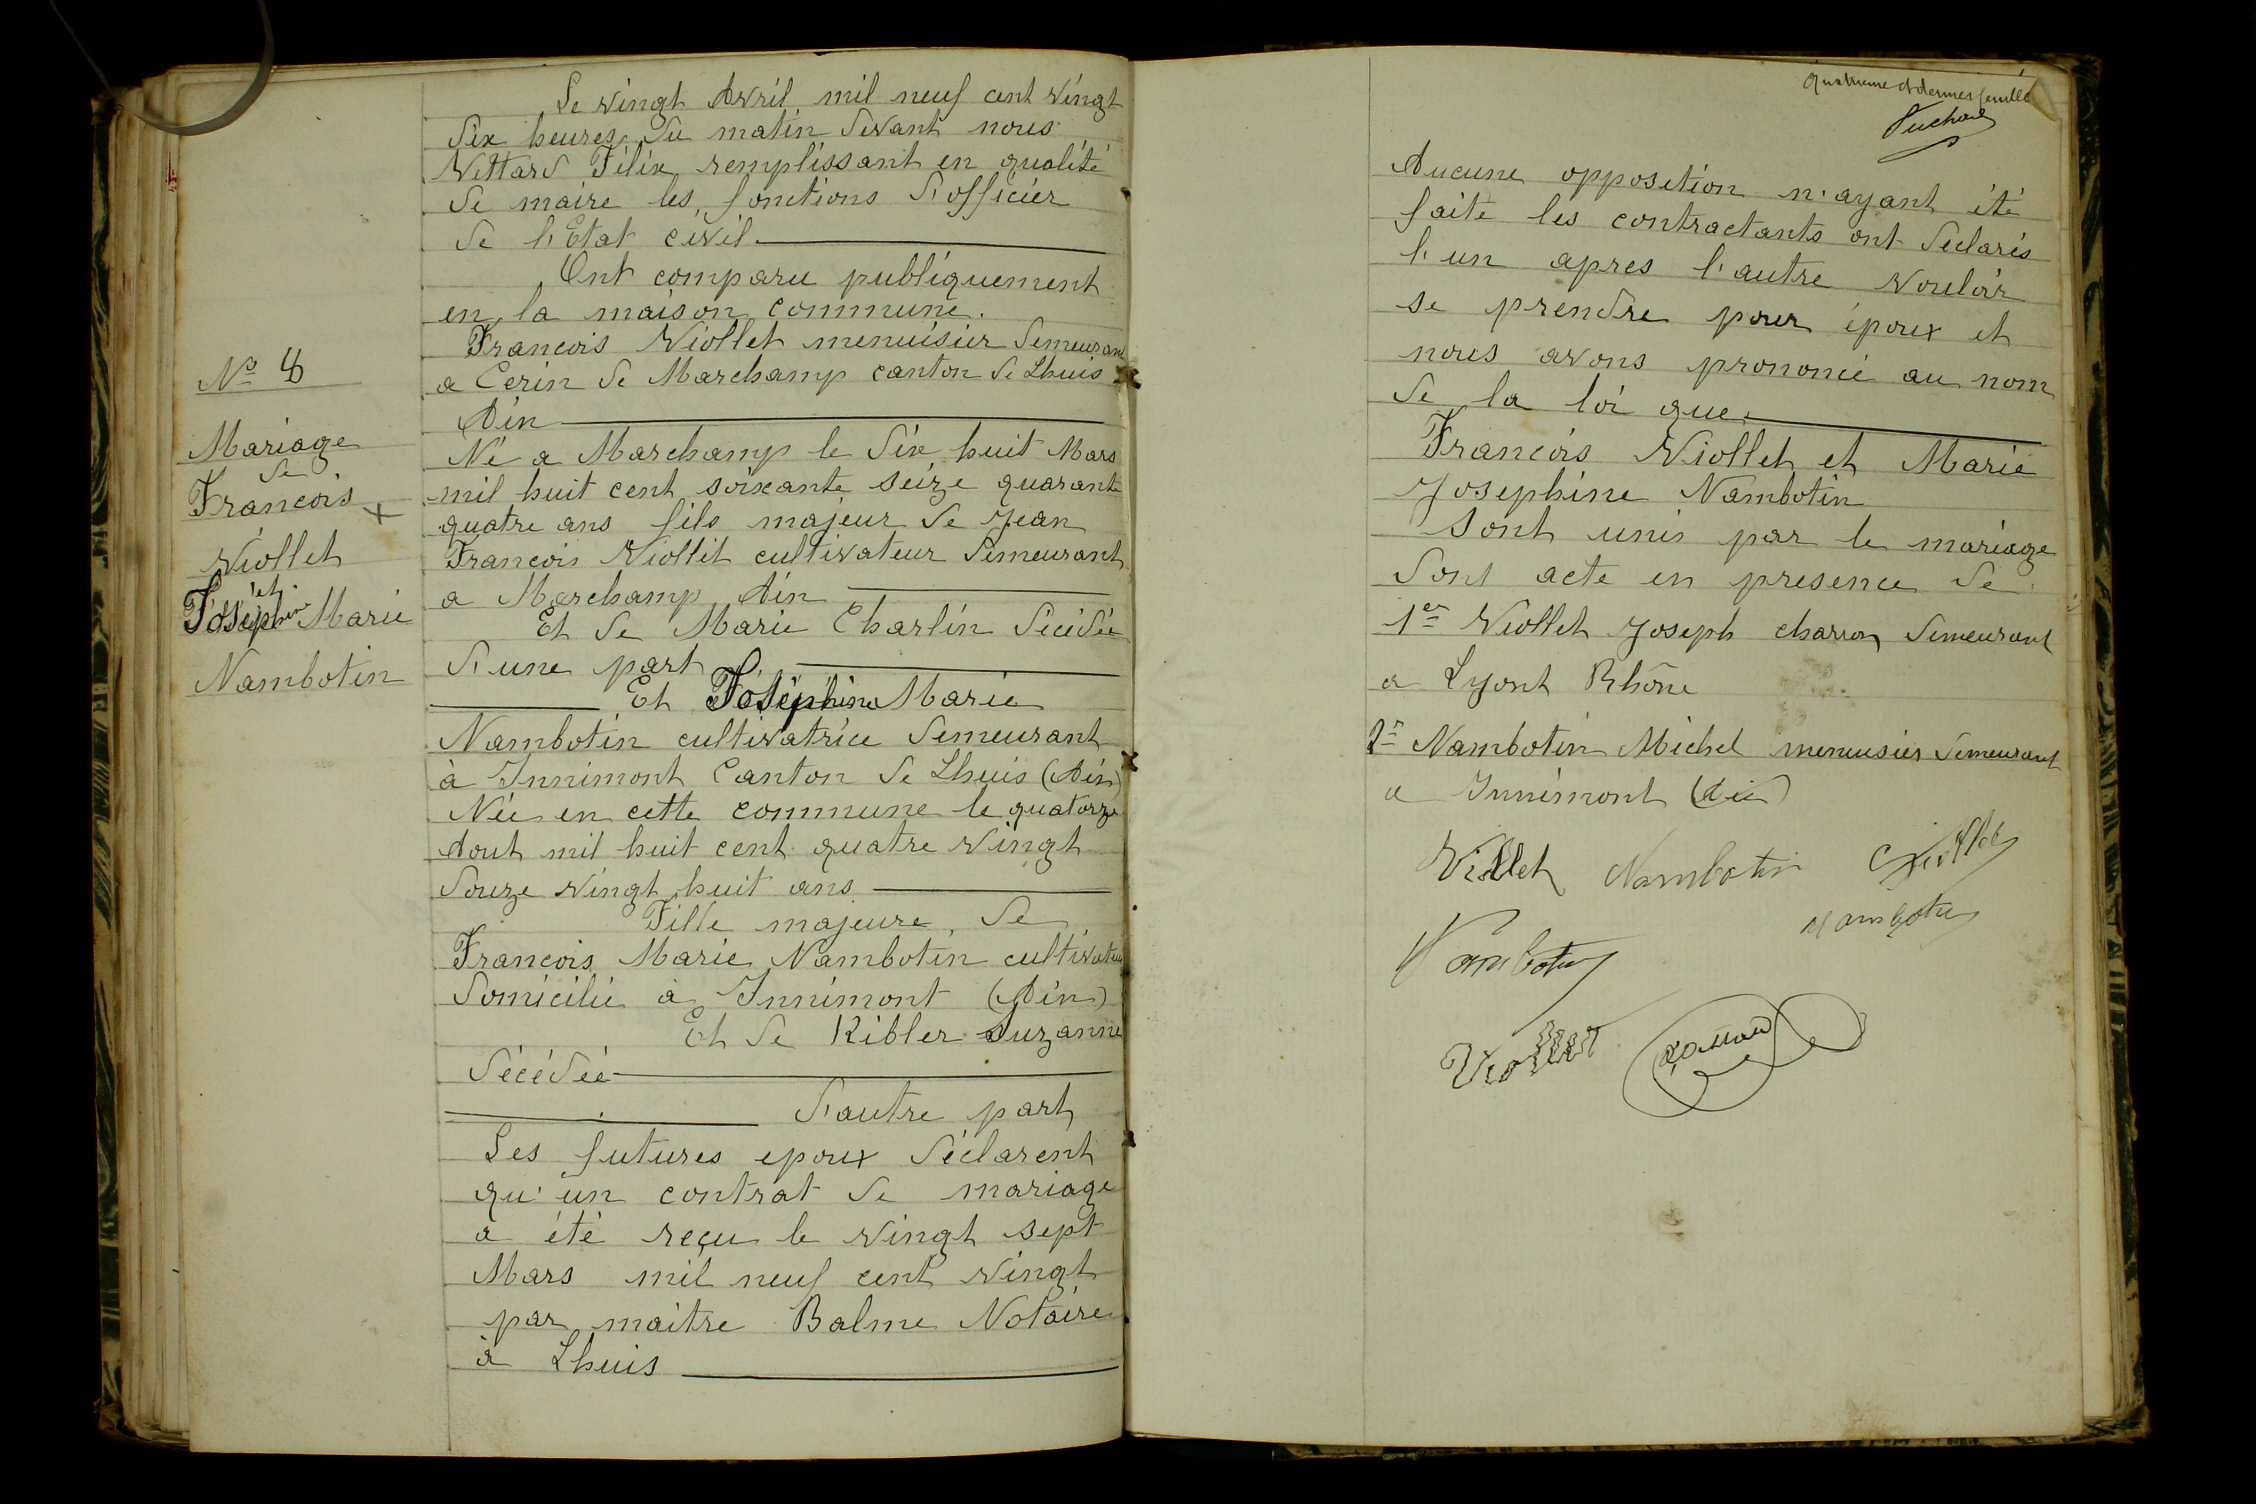 Le vingt Avril mil neuf cent vingt
dix heures du matin devant nous
Vettard Félix remplissant en qualité
de maire les fonctions d'officier
de l'Etat civil.
Ont comparu publiquement
en la maison commune.
Francois Viollet menuisier demeurant
a Cerin de Marchamp canton de Lhuis
Ain
Né a Marchamp le dix huit Mars
mil huit cent soixante seize quarante
quatre ans fils majeur de Jean
Francois Viollit cultivateur demeurant
a Marchamp Ain
Et de Marie Charlin décédée
d'une part
Et Joséphine Marie
Nambotin cultivatrice demeurant
à Innimont Canton de Lhuis (Ain)
Née en cette commune le quatorze
Aout mil huit cent quatre vingt
douze vingt huit ans
Fille majeure, de
Francois Marie Nambotin cultivateur
domicilié à Innimont (Ain)
Et de Kibler Suzanne
décédée
d'autre part
Les futures epoux déclarent
qu'un contrat de mariage
a été reçu le vingt sept
Mars mil neuf cent vingt
par maitre Balme Notaire
à Lhuis
No 8
Mariage
de
Francois
Viollet
et
Joséphine Marie
Nambotin
quatrieme et dernier feuillet
Aucune opposition n'ayant été
faite les contractants ont déclarés
l'un apres l'autre vouloir
se prendre pour époux et
nous avons prononcé au nom
de la loi que.
Francois Viollet et Marie
Josephine Nambotin
sont unis par le mariage
dont acte en presence de
1er Viollet Joseph charron demeurant
a Lyont Rhône
2e Nambotin Michel menusier demeurant
a Innimont (Ain)
Viollet Nambotin Viollet
Nambotin
Nambotin
Viollet